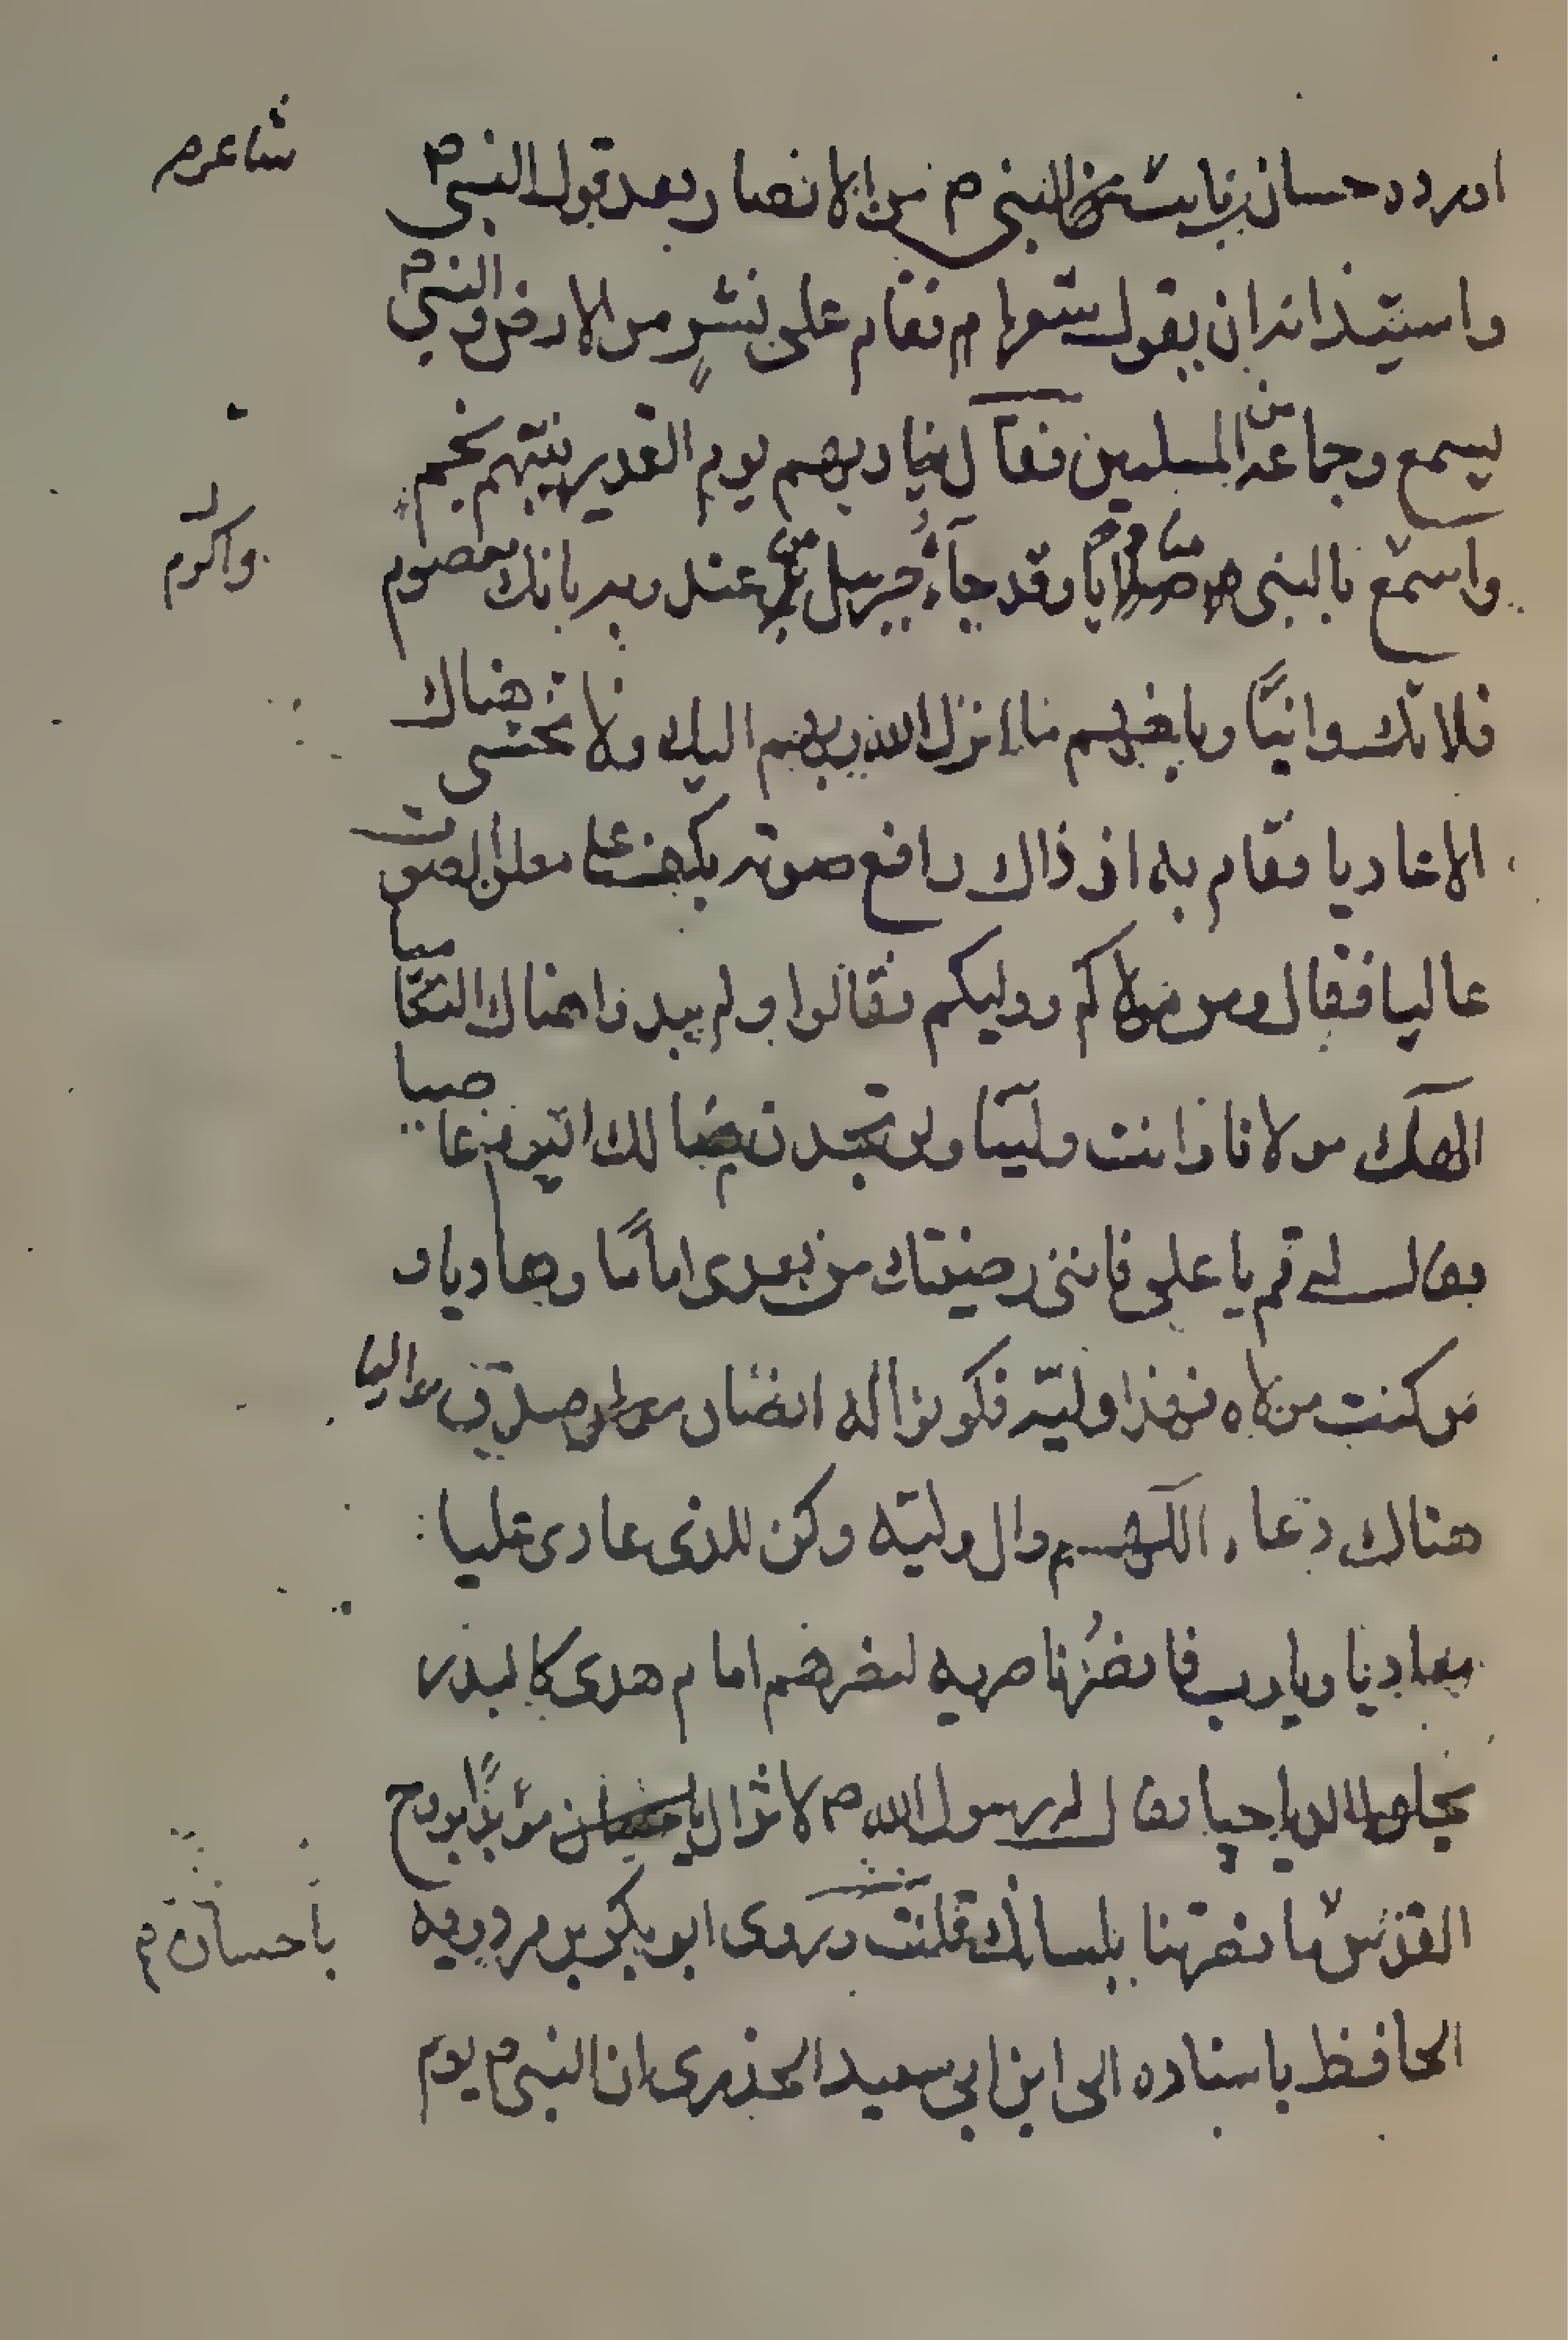 اورده حسان بن ثابت النبي م من الانصار بعد قول النبي م
شاعر م
واستيذانه ان يقول شعرا م فقام على نشز من الارض والنبي م
يسمع وجماعة من المسلمين فقال يناديهم يوم الغدير نبيهم بخم
واسمع بالنبى مناديا وقد جآءه جبرئيل من عند ربه بانك معصوم
واكرم
فلا تك وانيًا وبلغهم ما انزل الله ربهم اليك ولا تخشى هناك
الاعاديا فقام به اذ ذاك رافع صوته بكف على معلن الصوت
عاليا فقال ومن مولاكم ووليكم فقالوا ولم يبدوا هناك التعاميا
الهك مولانا وانت وليّنا ولن تجدن منا لك اليوم عاصيا
فقال له قم يا على فاننى رضيتك من بعدى امامًا وهاديا و
من كنت مولاه فهذا وليّه فكونوا له انصار صدق مواليا
هناك دعا اللّهم وال وليّه وكن للذى عادى عليا :
معاديا ويا رب فانصُر ناصريه لنصرهم امام هدى كالبدر
يجلو الدياجيا فقال له رسول الله م لا تزال مؤيدًا بروح
القدس ما نصرتنا بلسانك قلت وروى ابو بكر بن مردويه
يا حسان م
الحافظ باسناده الى ابن ابي سعيد الخدرى ان النبى م يوم